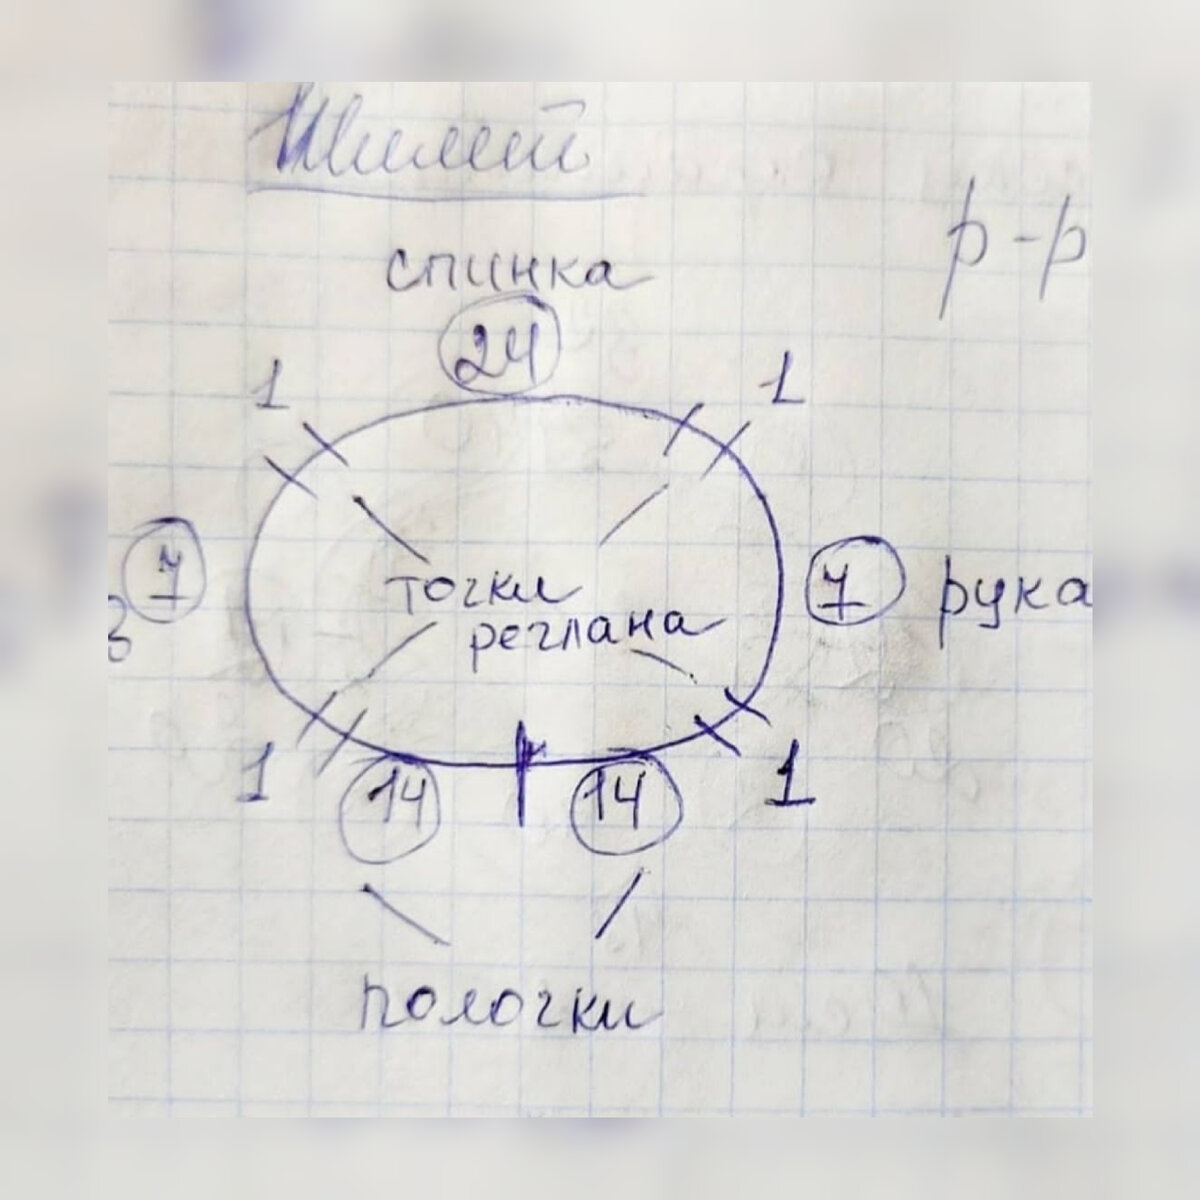 Жилет
р-р
спинка
24
1 1
7 7 рука
в
точки
реглана
1 1
14 14
полочки